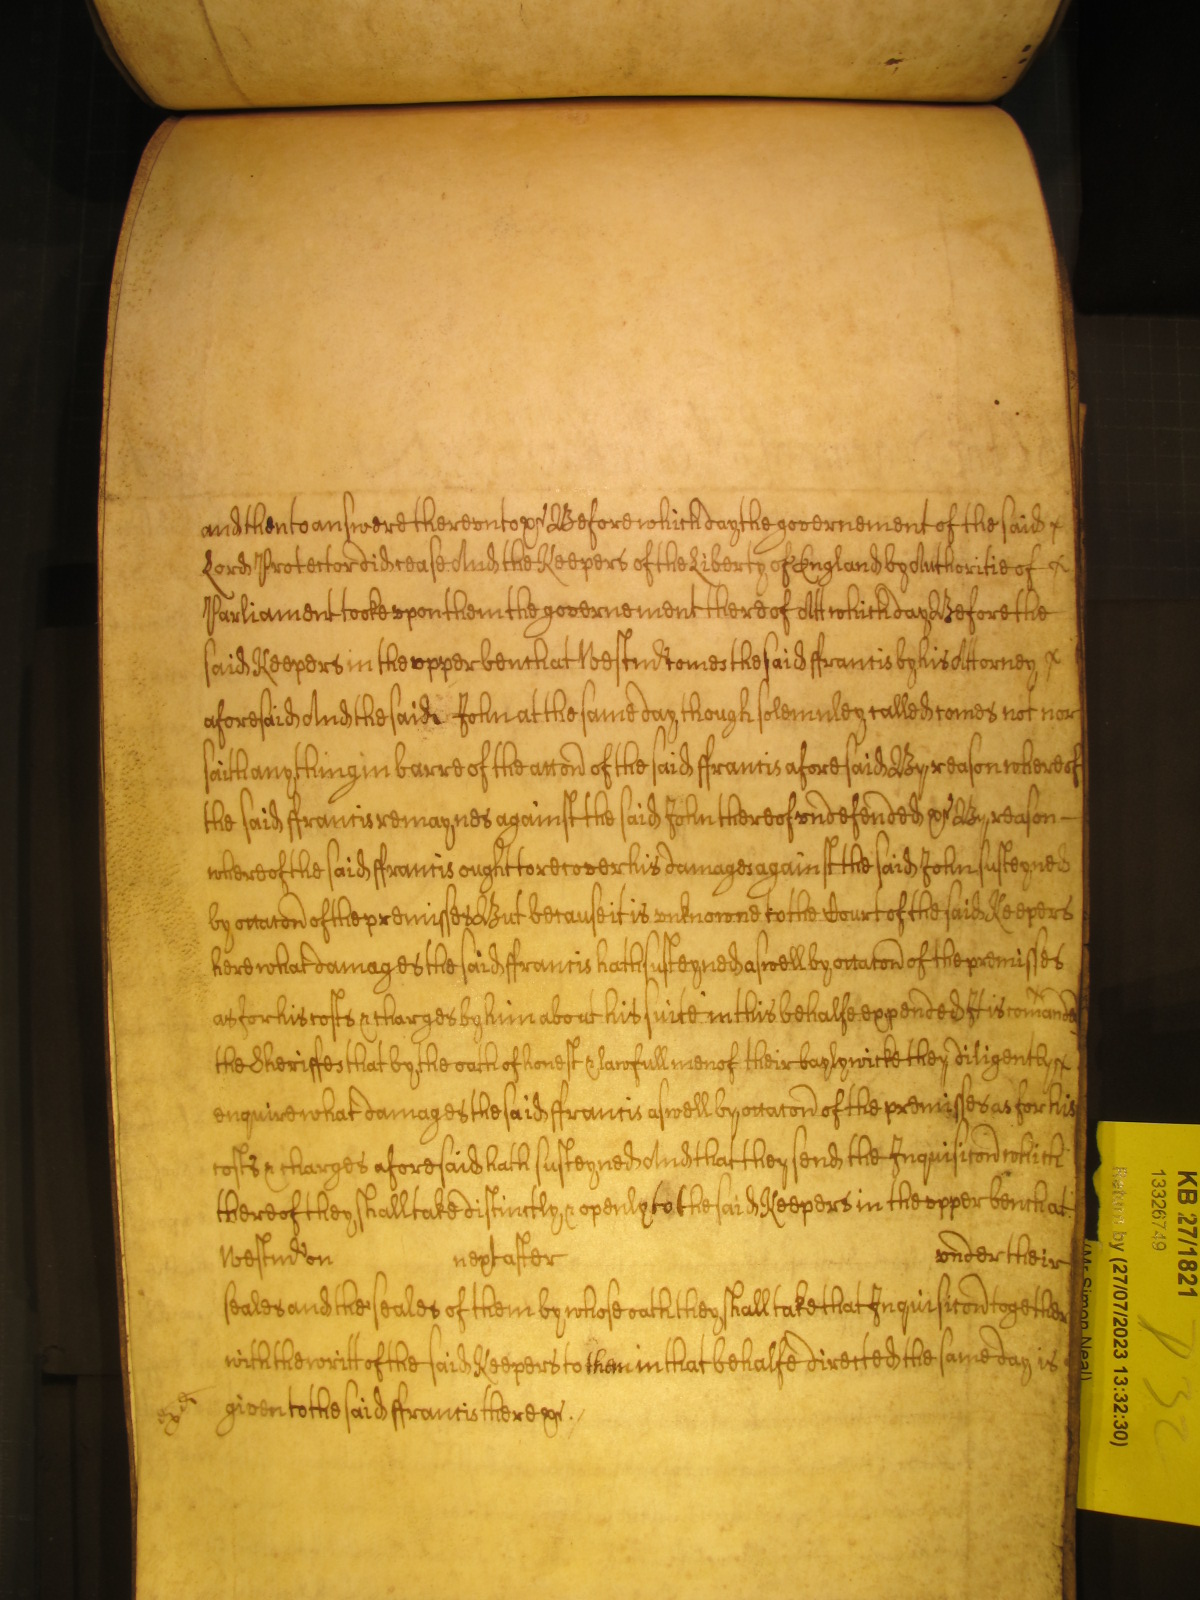 and then to answere therevnto &c Before which day the governement of the said
Lord Protector did cease And the Keepers of the Liberty of England by Authoritie of
Parliament tooke vpon them the governement thereof Att which day Before the
said Keepers in the vpper bench at Westm̃ comes the said ffrancis by his Attorney
aforesaid And the said John at the same day though solemnley called comes not nor
saith any thing in barre of the accōn of the said ffrancis aforesaid By reason whereof
the said ffrancis remaynes against the said John thereof vndefended &c By reason
whereof the said ffrancis ought to recover his damages against the said John susteyned
by occacōn of the premisses But because it is vnknowne to the Court of the said Keepers
here what damages the said ffrancis hath susteyned aswell by occacōn of the premisses
as for his costs & charges by him about his suite in this behalfe expended It is com̄anded
the Sheriffes that by the oath of honest & lawfull men of their baylywicke they diligently
enquire what damages the said ffrancis aswell by occacōn of the premisses as for his
costs & charges aforesaid hath susteyned And that they send the Inquisicōn which
thereof they shall take distinctly & openly to the said Keepers in the vpper bench at
Westm̃ on next after vnder their
seales and the seales of them by whose oath they shall take that Inquisicōn together
with the writt of the said Keepers to them in that behalfe directed the same day is
given to the said ffrancis there &c.
KB 27/1821
13326749
Return by (27/07/2023 13:32:30)
(Mr Simon Neal)